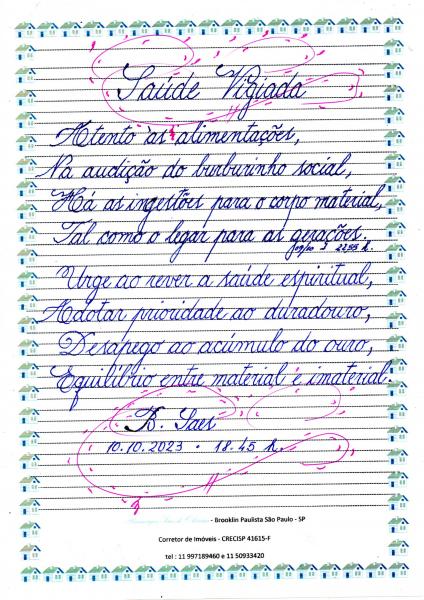 Saúde Vigiada
Atento às alimentações,
Na audição do burburinho social,
Há as ingestões para o corpo material,
Tal como o legar para as gerações.
22:55 h.
Urge ao rever a saúde espiritual,
Adotar prioridade ao duradouro,
Desapego ao acúmulo do ouro,
Equilíbrio entre material e imaterial.
B. Saes
10.10.2023 · 18.45 h.
- Brooklin Paulista São Paulo - SP
Corretor de Imóveis - CRECISP 41615-F
tel : 11 997189460 e 11 50933420